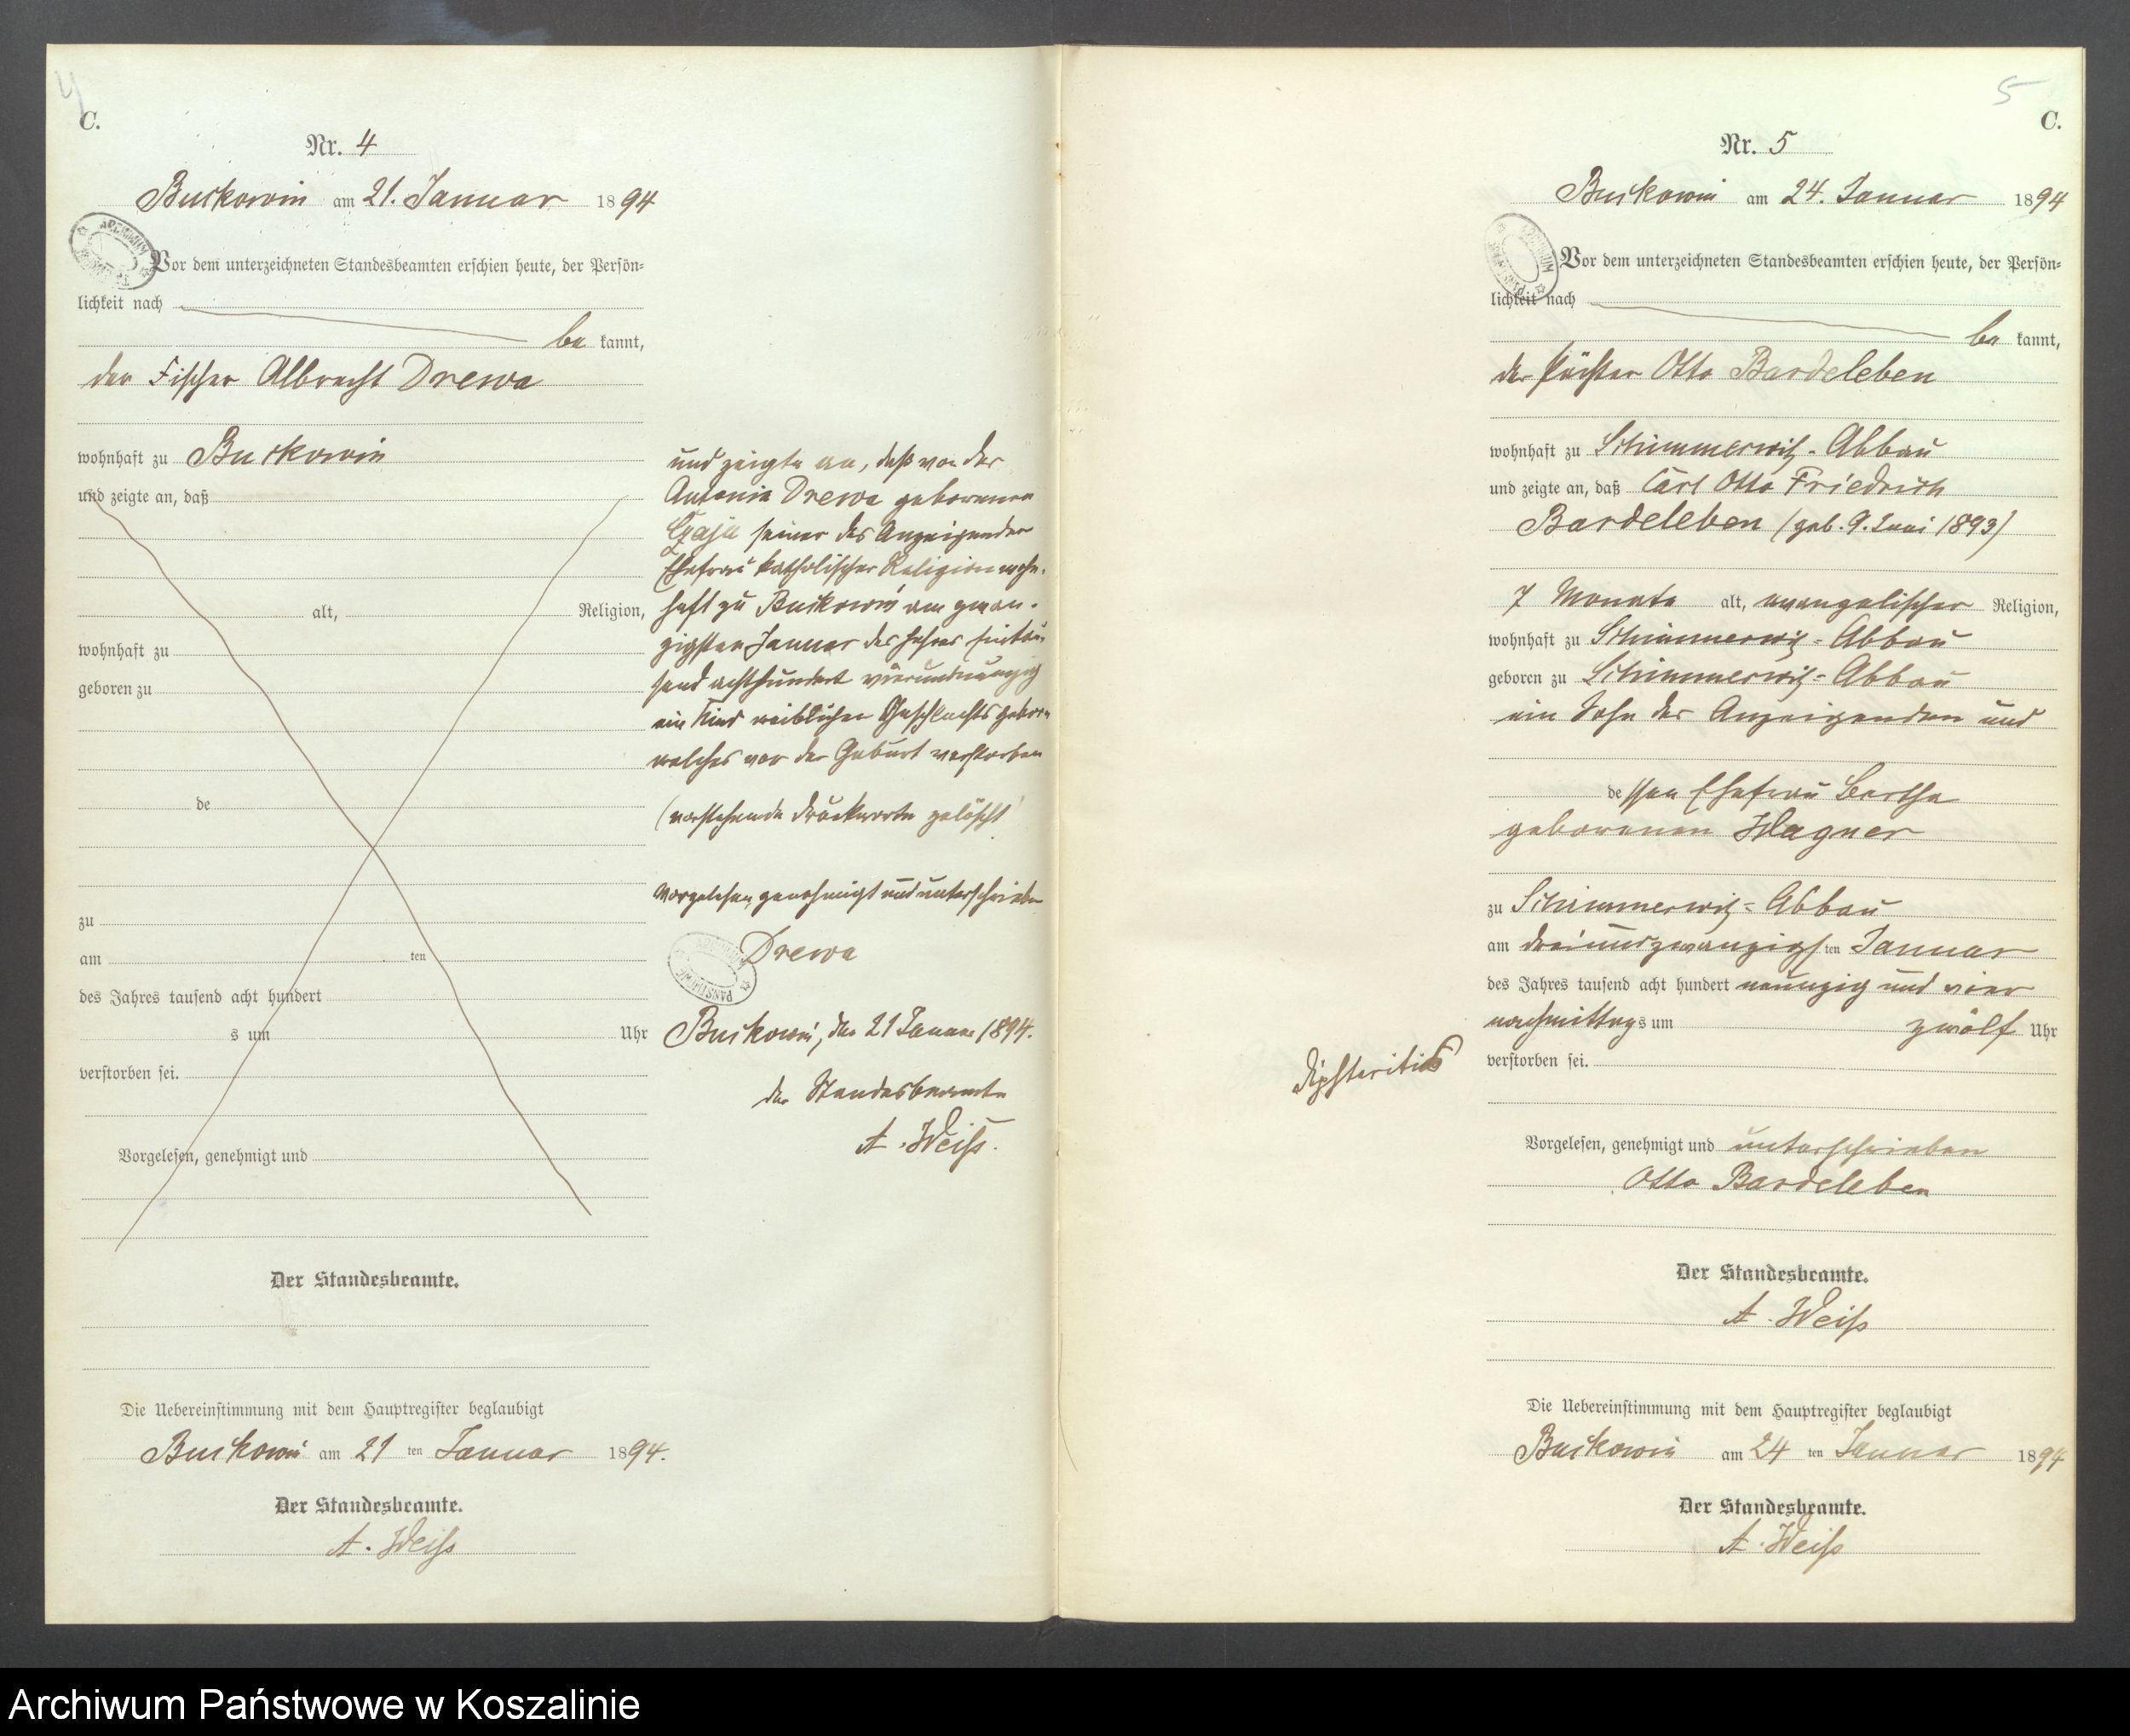 4
C.
Nr. 4
Buckowin am 21. Januar 1894
Vor dem unterzeichneten Standesbeamten erschien heute, der Persön=
lichkeit nach
be kannt,
der Fischer Albrecht Drewa
wohnhaft zu Buckowin
und zeigte an, daß
alt, Religion,
wohnhaft zu
geboren zu
de
zu
am ten
des Jahres tausend acht hundert
s um Uhr
verstorben sei.
Vorgelesen, genehmigt und
Der Standesbeamte.
Die Uebereinstimmung mit dem Hauptregister beglaubigt
Buckowin am 21 ten Januar 1894.
Der Standesbeamte.
A. Weiß
und zeigte an, daß von der
Antonie Drewa geborenen
Czaja seiner des Anzeigenden
Ehefrau katholischer Religion wohn-
haft zu Buckowin am zwan-
zigsten Januar des Jahres eintau-
send achthundert vierundneunzig
ein Kind weiblichen Geschlechts geboren
welches vor der Geburt verstorben
(vorstehende Druckworte gelöscht
Vorgelesen, genehmigt und unterschrieben
Drewa
Buckowin, den 21 Januar 1894.
der Standesbeamte
A. Weiß.
5
C.
Nr. 5
Buckowin am 24. Januar 1894
Vor dem unterzeichneten Standesbeamten erschien heute, der Persön=
lichkeit nach
be kannt,
der Pächter Otto Bardeleben
wohnhaft zu Schimmerwitz-Abbau
und zeigte an, daß Carl Otto Friedrich
Bardeleben (geb. 9. Juni 1893)
7 Monate alt, evangelischer Religion,
wohnhaft zu Schimmerwitz-Abbau
geboren zu Schimmerwitz-Abbau
ein Sohn des Anzeigenden und
dessen Ehefrau Bertha
geborenen Wagner
zu Schimmerwitz-Abbau
am dreiundzwanzigsten Januar
des Jahres tausend acht hundert neunzig und vier
nachmittags um zwölf Uhr
verstorben sei.
Diphteritis
Vorgelesen, genehmigt und unterschrieben
Otto Bardeleben
Der Standesbeamte.
A. Weiß
Die Uebereinstimmung mit dem Hauptregister beglaubigt
Buckowin am 24 ten Januar 1894
Der Standesbeamte.
A. Weiß
Archiwum Państwowe w Koszalinie